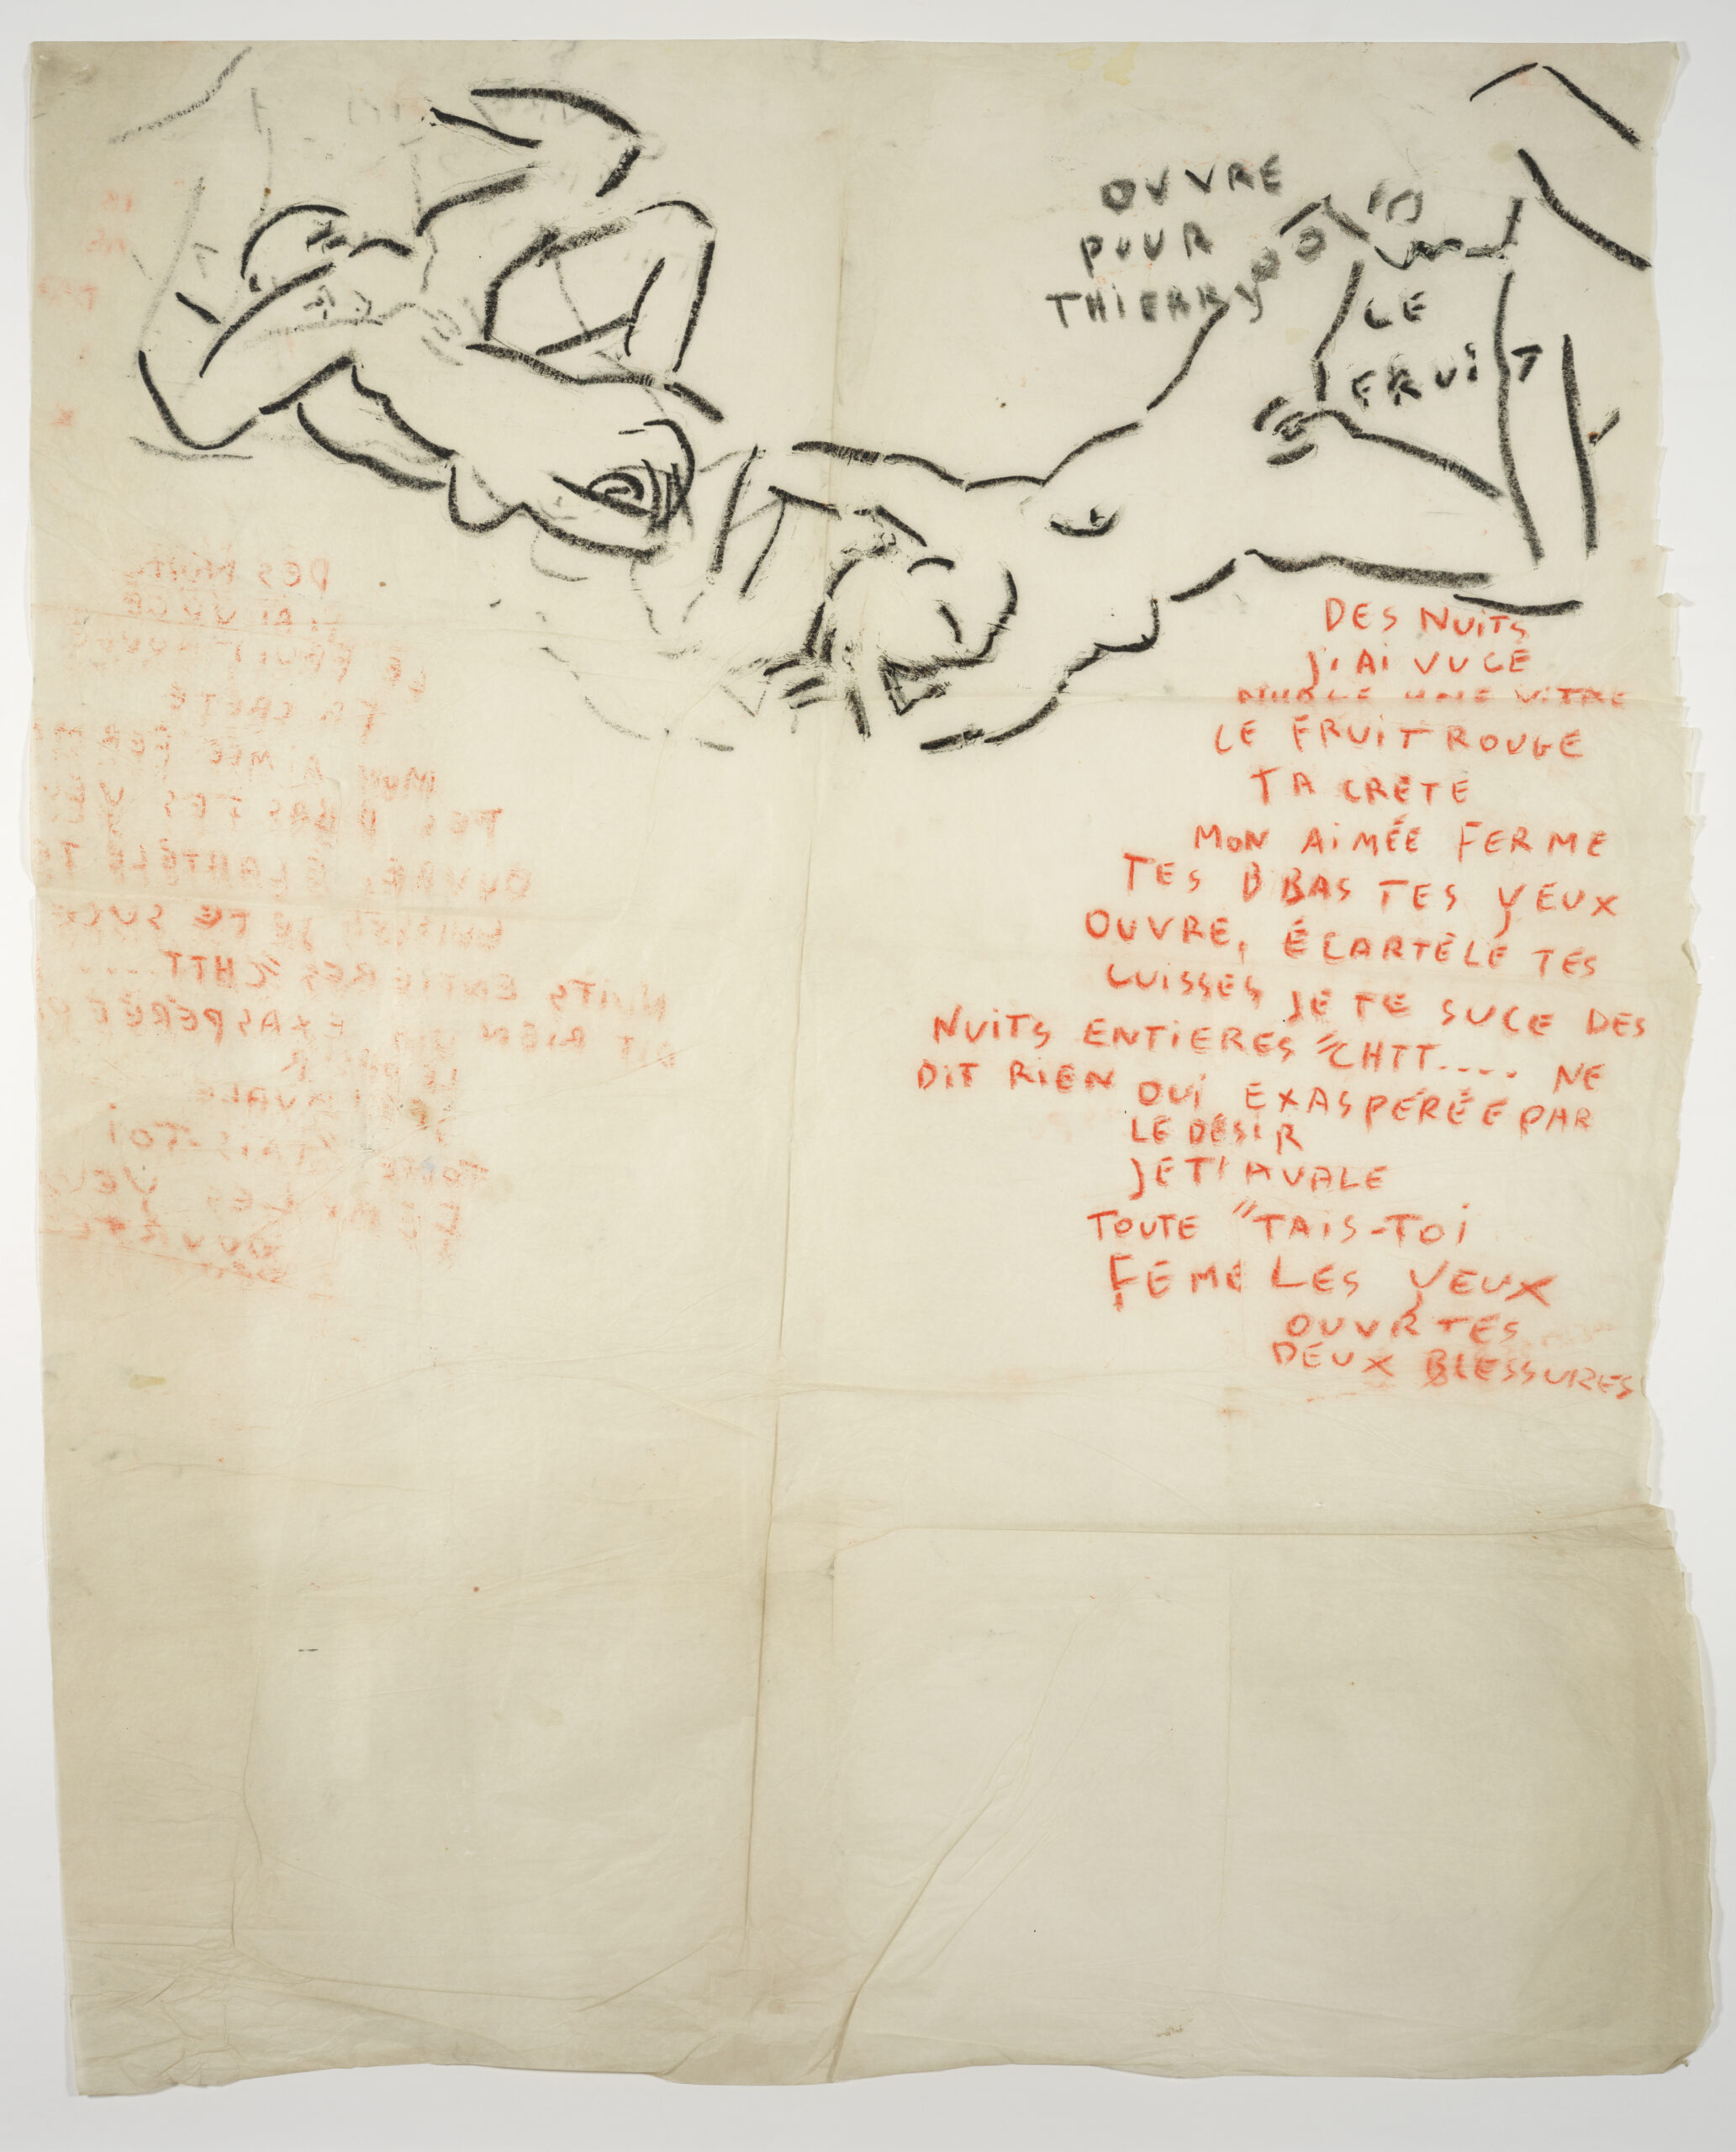 OUVRE
POUR
THIERRY
LE
FRUIT
DES NUITS
J'AI VU CE
UNE VITRE
LE FRUIT ROUGE
TA CRÊTE
MON AIMÉE FERME
TES B BAS TES YEUX
OUVRE, ÉCARTÈLE TES
CUISSES JE TE SUCE DES
NUITS ENTIERES "CHTT.... NE
DIT RIEN OUI EXASPÉRÉE PAR
LE DÉSIR
JE T'AVALE
TOUTE "TAIS-TOI
FEME LES YEUX
OUVRTES
DEUX BLESSURES